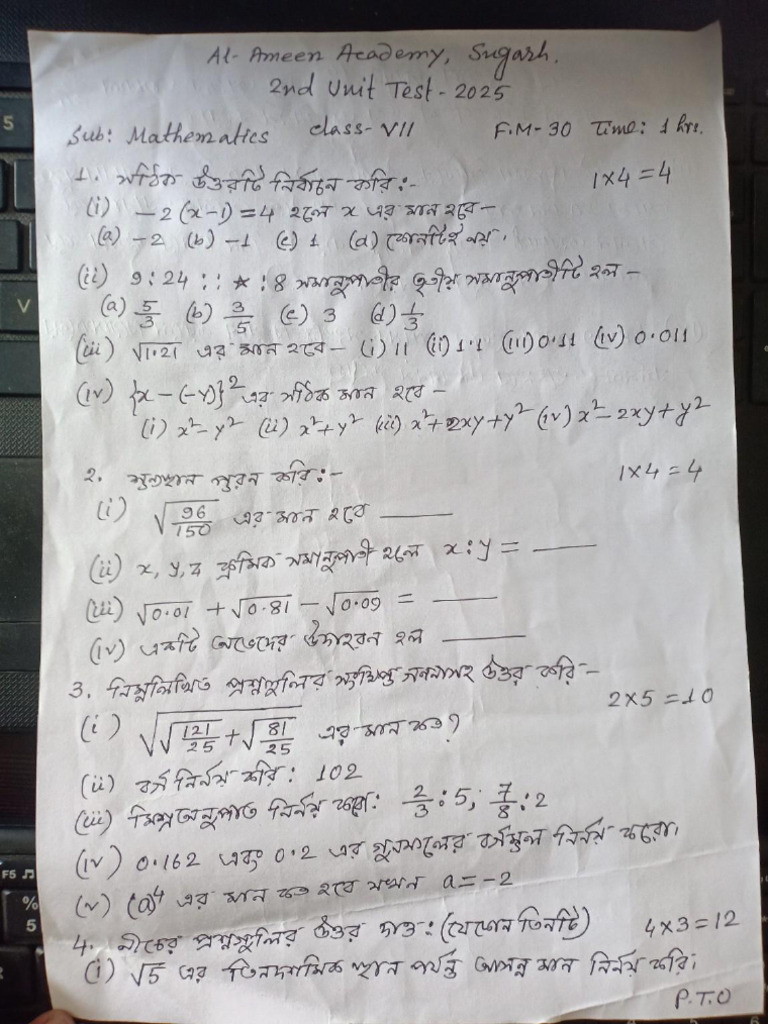 Al-Ameen Academy, Sugarh.
2nd Unit Test - 2025
Sub: Mathematics class-VII F.M-30 Time: 1 hrs.
1. সঠিক উত্তরটি নির্বাচন করি:- 1×4=4
(i) -2(x-1)=4 হলে x এর মান হবে-
(a) -2 (b) -1 (c) 1 (d) কোনটিই নয়।
(ii) 9:24 :: ★:8 সমানুপাতীর তৃতীয় সমানুপাতীটি হল-
(a) 5/3 (b) 3/5 (c) 3 (d) 1/3
(iii) √1.21 এর মান হবে- (i) 11 (ii) 1.1 (iii) 0.11 (iv) 0.011
(iv) {x-(-y)}² এর সঠিক মান হবে-
(i) x²-y² (ii) x²+y² (iii) x²+2xy+y² (iv) x²-2xy+y²
2. শূন্যস্থান পুরন করি:- 1×4=4
(i) √(96/150) এর মান হবে ___
(ii) x, y, z ক্রমিক সমানুপাতী হলে x:y = ___
(iii) √0.01 + √0.81 - √0.09 = ___
(iv) একটি অভেদের উদাহরন হল ___
3. নিম্নলিখিত প্রশ্নগুলির সংক্ষিপ্ত গননাসহ উত্তর করি- 2×5=10
(i) √(√(121/25) + √(81/25)) এর মান কত?
(ii) বর্গ নির্নয় করি: 102
(iii) মিশ্রঅনুপাত নির্নয় করো: 2/3:5, 7/8:2
(iv) 0.162 এবং 0.2 এর গুনফলের বর্গমূল নির্নয় করো।
(v) (a)⁴ এর মান কত হবে যখন a=-2
4. নীচের প্রশ্নগুলির উত্তর দাও: (যেকোন তিনটি) 4×3=12
(i) √5 এর তিনদশমিক স্থান পর্যন্ত আসন্ন মান নির্নয় করি।
P.T.O